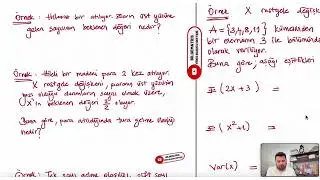 Örnek: Hilesiz bir atılıyor. Zarın üst yüzüne
gelen sayının beklenen değeri nedir?
Örnek: Hileli bir madeni para 2 kez atılıyor.
X rastgele değişkeni, paranın üst yüzünün
yazı olduğu durumların sayısı olmak üzere,
X'in beklenen değeri 3/2 oluyor.
Buna göre, para atıldığında tura gelme olasılığı
nedir?
Örnek X rastgele değişke
A = {3,4,8,11} kümesinden
bir elemanın 3 ile bölümünde
olarak veriliyor.
Buna göre, aşağı eşitlikleri
E(2X+3) =
E(X²+1) =
Var(X) =